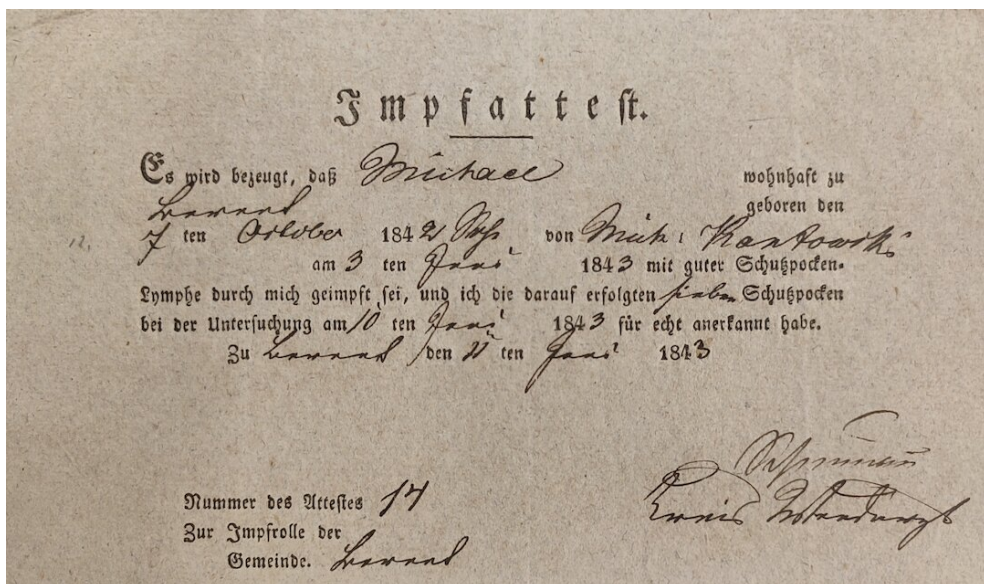 Impfattest.
Es wird bezeugt, daß Michael wohnhaft zu
Berent geboren den
7 ten October 1842 Sohn von Mich: Kantowski
am 3 ten Juni 1843 mit guter Schutzpocken-
Lymphe durch mich geimpft sei, und ich die darauf erfolgten sieben Schutzpocken
bei der Untersuchung am 10 ten Juni 1843 für echt anerkannt habe.
Zu Berent den 11 ten Juni 1843
Kreis Wundarzt
Nummer des Attestes 14
Zur Impfrolle der
Gemeinde. Berent